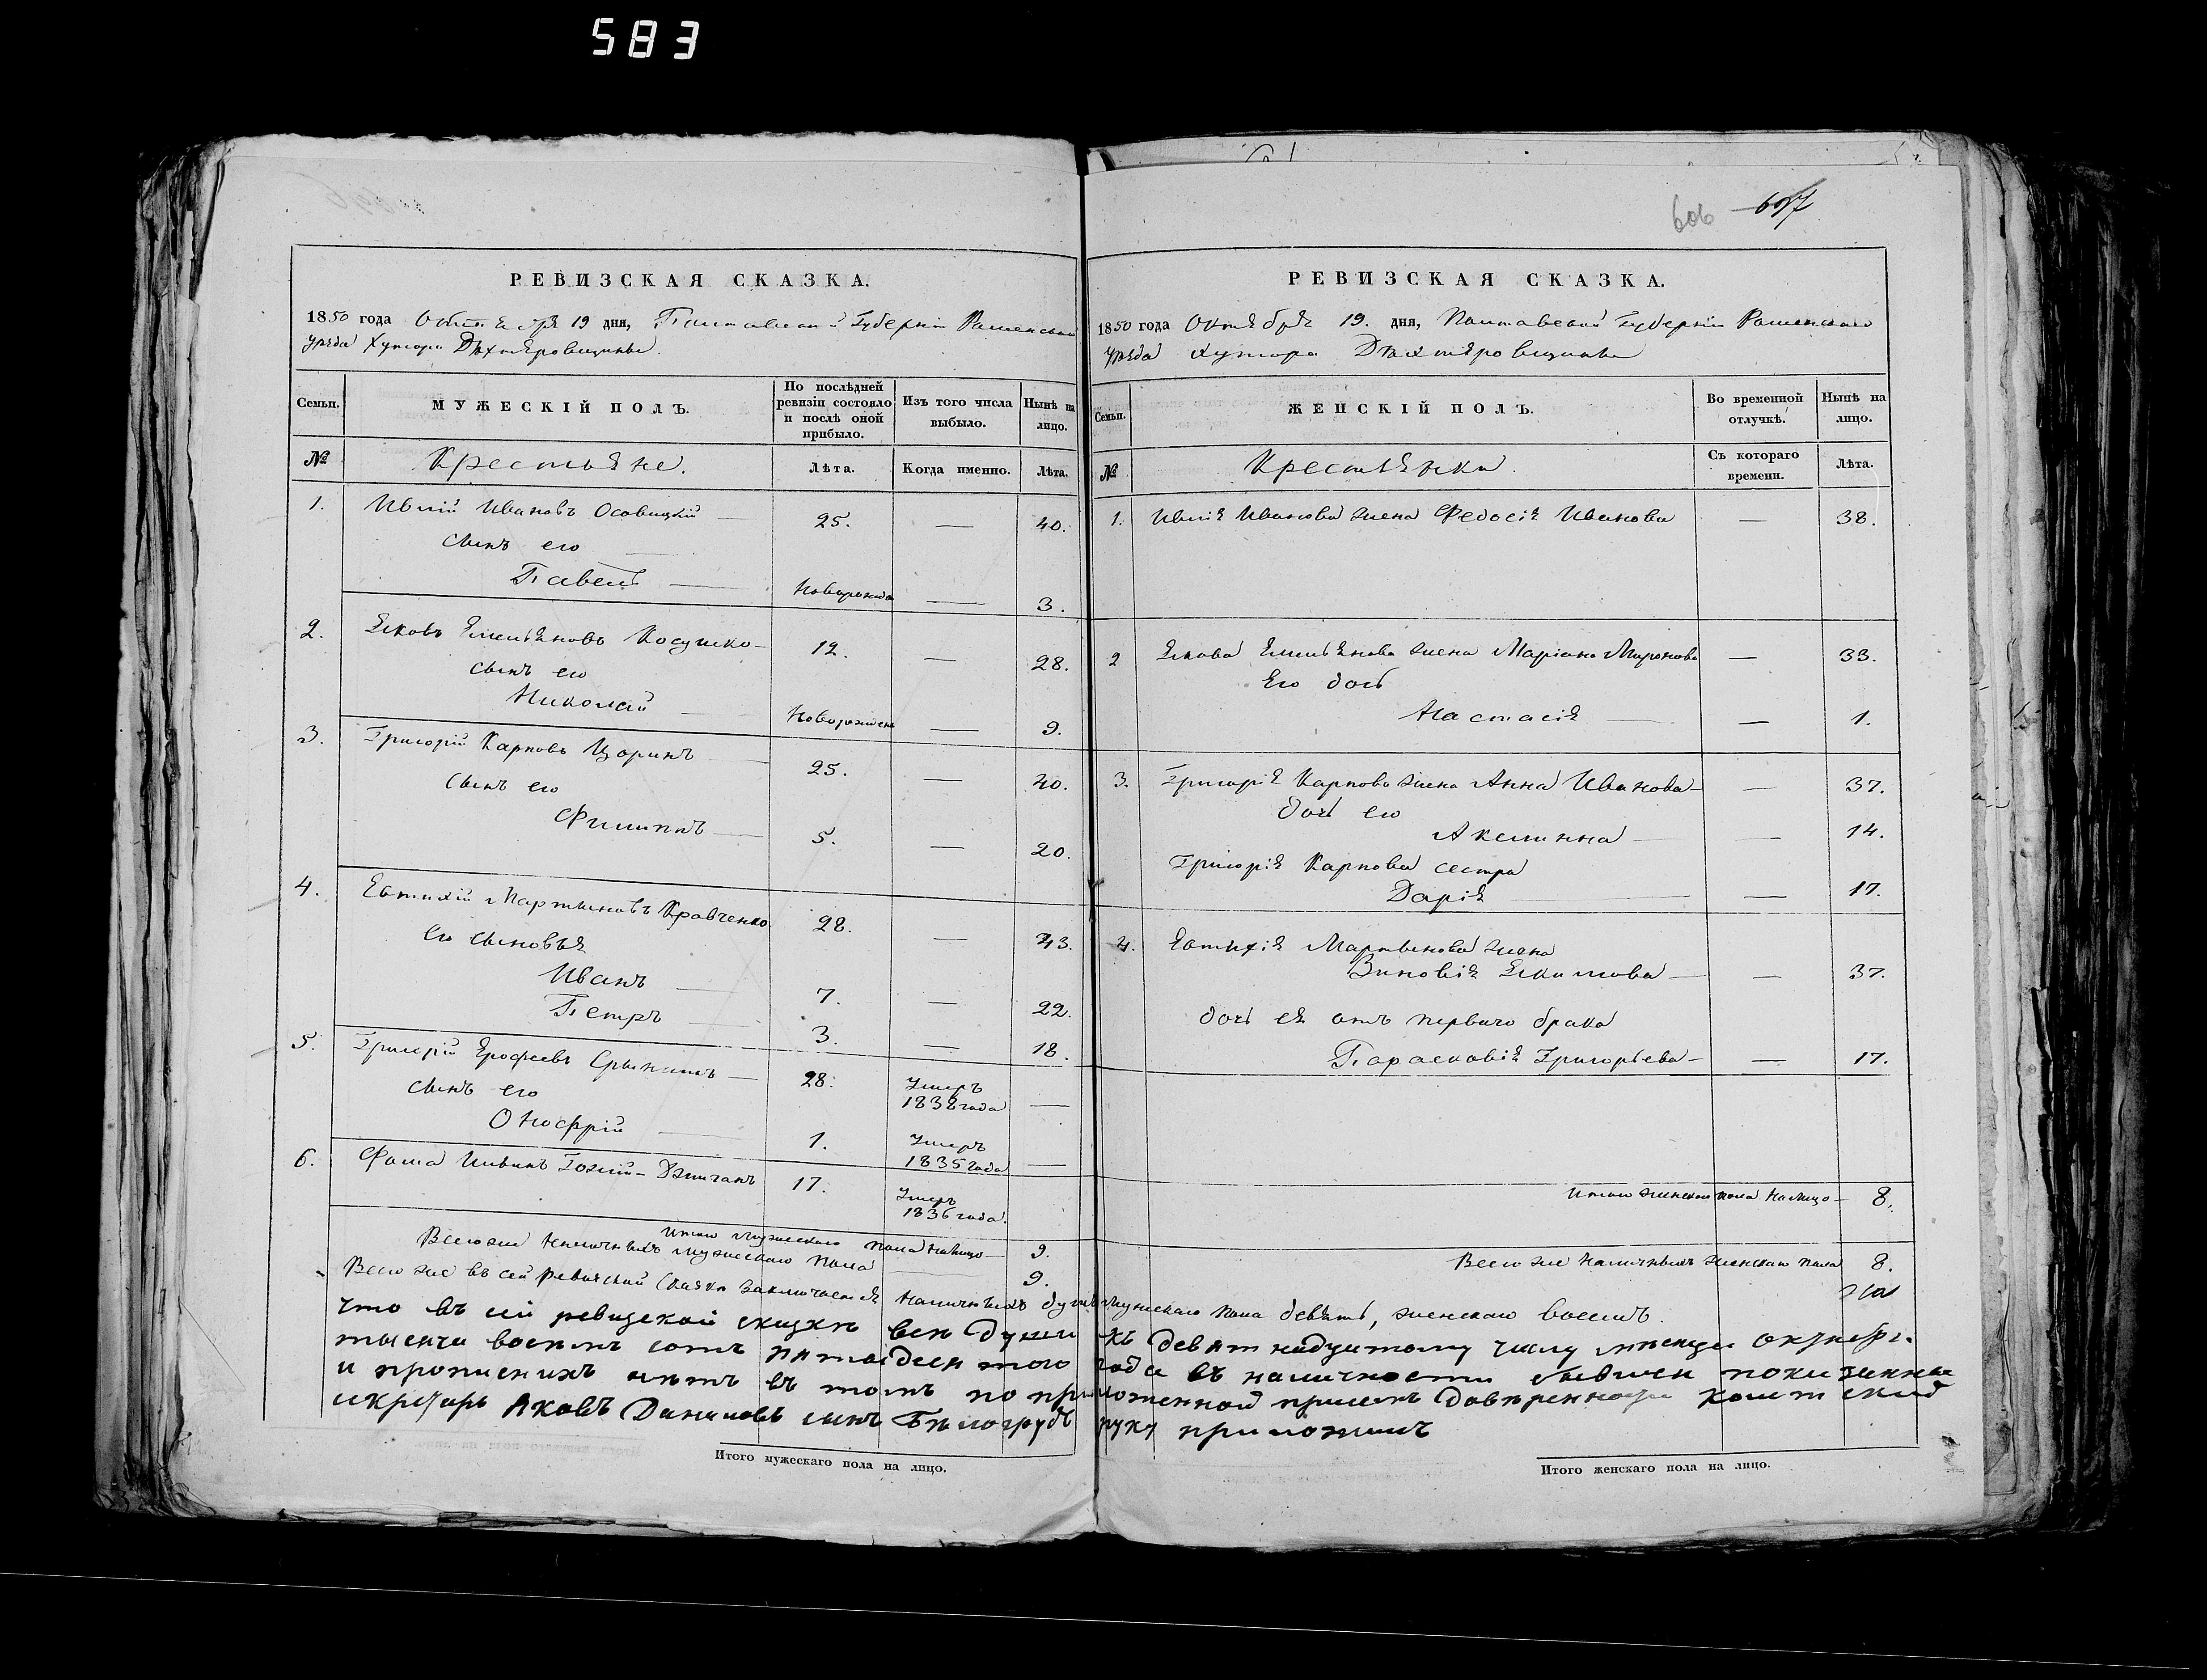 583
606 607
РЕВИЗСКАЯ СКАЗКА.
1850 года Октября 19 дня, Полтавской Губерніи Роменскаго
уѣзда Хутора Дѣхтяровщины
Семьи. МУЖЕСКІЙ ПОЛЪ. По послѣдней ревизіи состояло и послѣ оной прибыло. Изъ того числа выбыло. Нынѣ на лицо.
№ Крестьяне. Лѣта. Когда именно. Лѣта.
1. Ивлій Ивановъ Осовицкій — 25. — 40.
сынъ его
Павелъ — Новорожден — 3.
2. Яковъ Емельяновъ Косушко — 12. — 28.
сынъ его
Николай Новорожден — 9.
3. Григорій Карповъ Цоринъ — 25. — 40.
сынъ его
Филиппъ — 5. — 20.
4. Евтихій Мартыновъ Кравченко 28. — 43.
его сыновья
Иванъ — 7. — 22.
Петръ — 3. — 18.
5. Григорій Ерофеевъ — 28. Умеръ 1838 года —
сынъ его
Онофрій — 1. Умеръ 1835 года —
6. Фома 17. Умеръ 1836 года.
Итого мужескаго пола налицо — 9.
Всего же наличныхъ мужескаго пола — 9.
РЕВИЗСКАЯ СКАЗКА.
1850 года Октября 19. дня, Полтавской Губерніи Роменскаго
уѣзда хутора Дѣхтяровщины
Семьи. ЖЕНСКІЙ ПОЛЪ. Во временной отлучкѣ. Нынѣ на лицо.
№ Крестьянки. Съ котораго времени. Лѣта.
1. Ивлія Иванова жена Федосія Иванова — 38.
2 Якова Емельянова жена Маріана Миронова — 33.
Его дочь
Настасія — — 1.
3. Григорія Карпова жена Анна Иванова — — 37.
дочь его
Акелинна — — 14.
Григорія Карпова сестра
Дарія — — 17.
4. Евтихія Мартынова жена
Зиновія Якимова — — 37.
дочь ея отъ перваго брака
Парасковія Григорьева — — 17.
Итого женскаго пола налицо — 8.
Всего же наличныхъ женскаго пола 8.
Всего же въ сей ревизской сказкѣ заключается наличныхъ душъ мужескаго пола девять, женскаго восемъ.
что въ сій ревизской скаскѣ всѣ души къ девятнадцатому числу мѣсяца октября
тысяча восемъ сотъ пятидесятого года въ наличности бывшеи показанны
и прописнихъ нѣтъ въ томъ по приложенной при семъ довѣренности
секретарь Яковъ Даниловъ сынъ Бѣлогрудъ руку приложилъ
Итого мужескаго пола на лицо.
Итого женскаго пола на лицо.